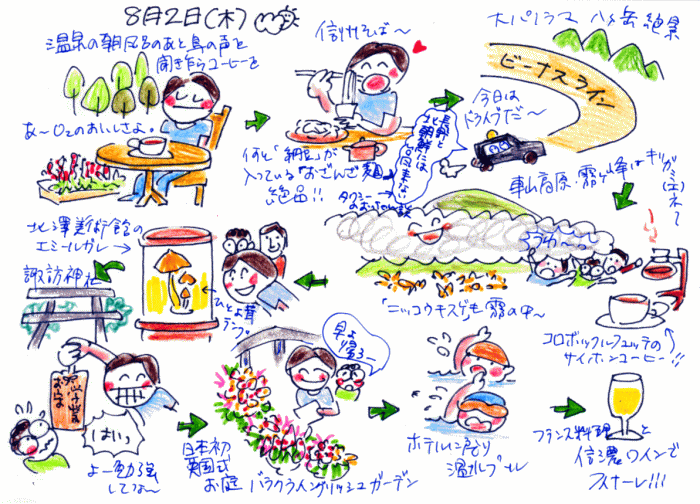 8月2日(木)
温泉の朝風呂のあと鳥の声を
聞き乍らコーヒーを
あ〜O₂のおいしさよ。
信州そば〜
何と「納豆」が
入っている「おざんざ麺」
絶品!!
大パノラマ 八ヶ岳絶景
ビーナスライン
今日は
ドライブだ〜
長野と
北朝鮮には
台風来ない
タクシー
のおっちゃん談
車山高原・霧ヶ峰は
うわ〜
「ニッコウキスゲ」も霧の中〜
コロボックルヒュッテの
サイホンコーヒー!!
北澤美術館の
エミールガレ→
ひとよ茸
ランプ。
諏訪神社
お守
はいっ
よー勉強
してな〜
日本初
英国式
お庭
早よ
帰ろー
バラクライングリッシュガーデン
ホテルに戻り
温水プール
フランス料理と
信濃ワインで
フィナーレ!!!